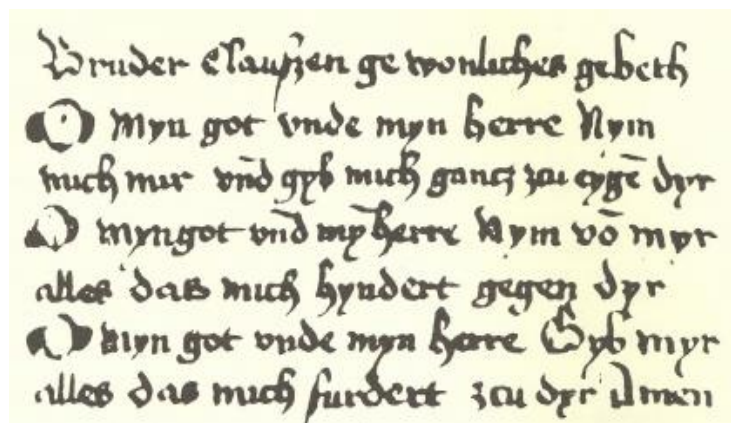 Bruder Claußen ge wonliches gebeth
O Myn got vnde myn herre Nym
mich mir vn̄d gyb mich gantz zcu eygē dyr
O myn got vn̄d mȳ herre Nym vō myr
alles das mich hyndert gegen dyr
O Myn got vnde myn herre Gyb myr
alles das mich furdert zcu dyr Amen